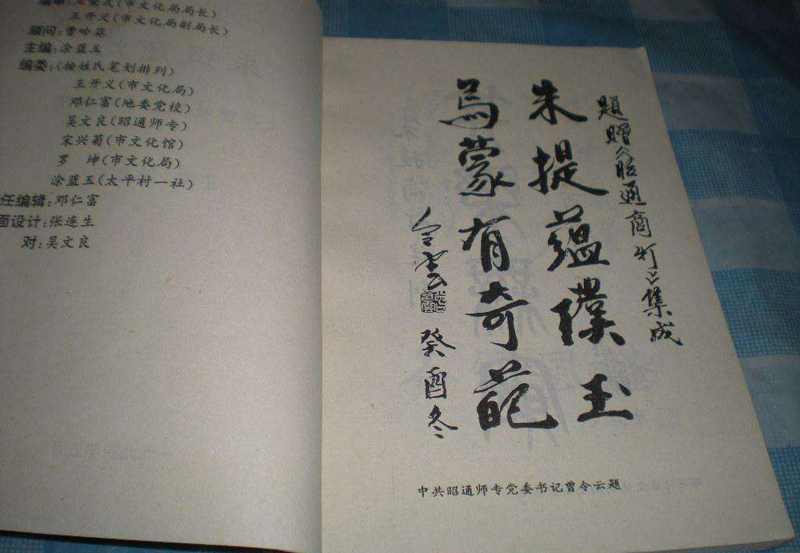 (市文化局局长)
王开义(市文化局副局长)
顾问:曹吟葵
主编:涂蓝玉
编委:(按姓氏笔划排列)
王开义(市文化局)
邓仁富(地委党校)
吴文良(昭通师专)
宋兴菊(市文化馆)
罗 坤(市文化局)
涂蓝玉(太平村一社)
任编辑:邓仁富
面设计:张连生
对:吴文良
題贈《昭通商灯》集成
朱提蕴璞玉
烏蒙有奇葩
令雲
癸酉冬
中共昭通师专党委书记曾令云题